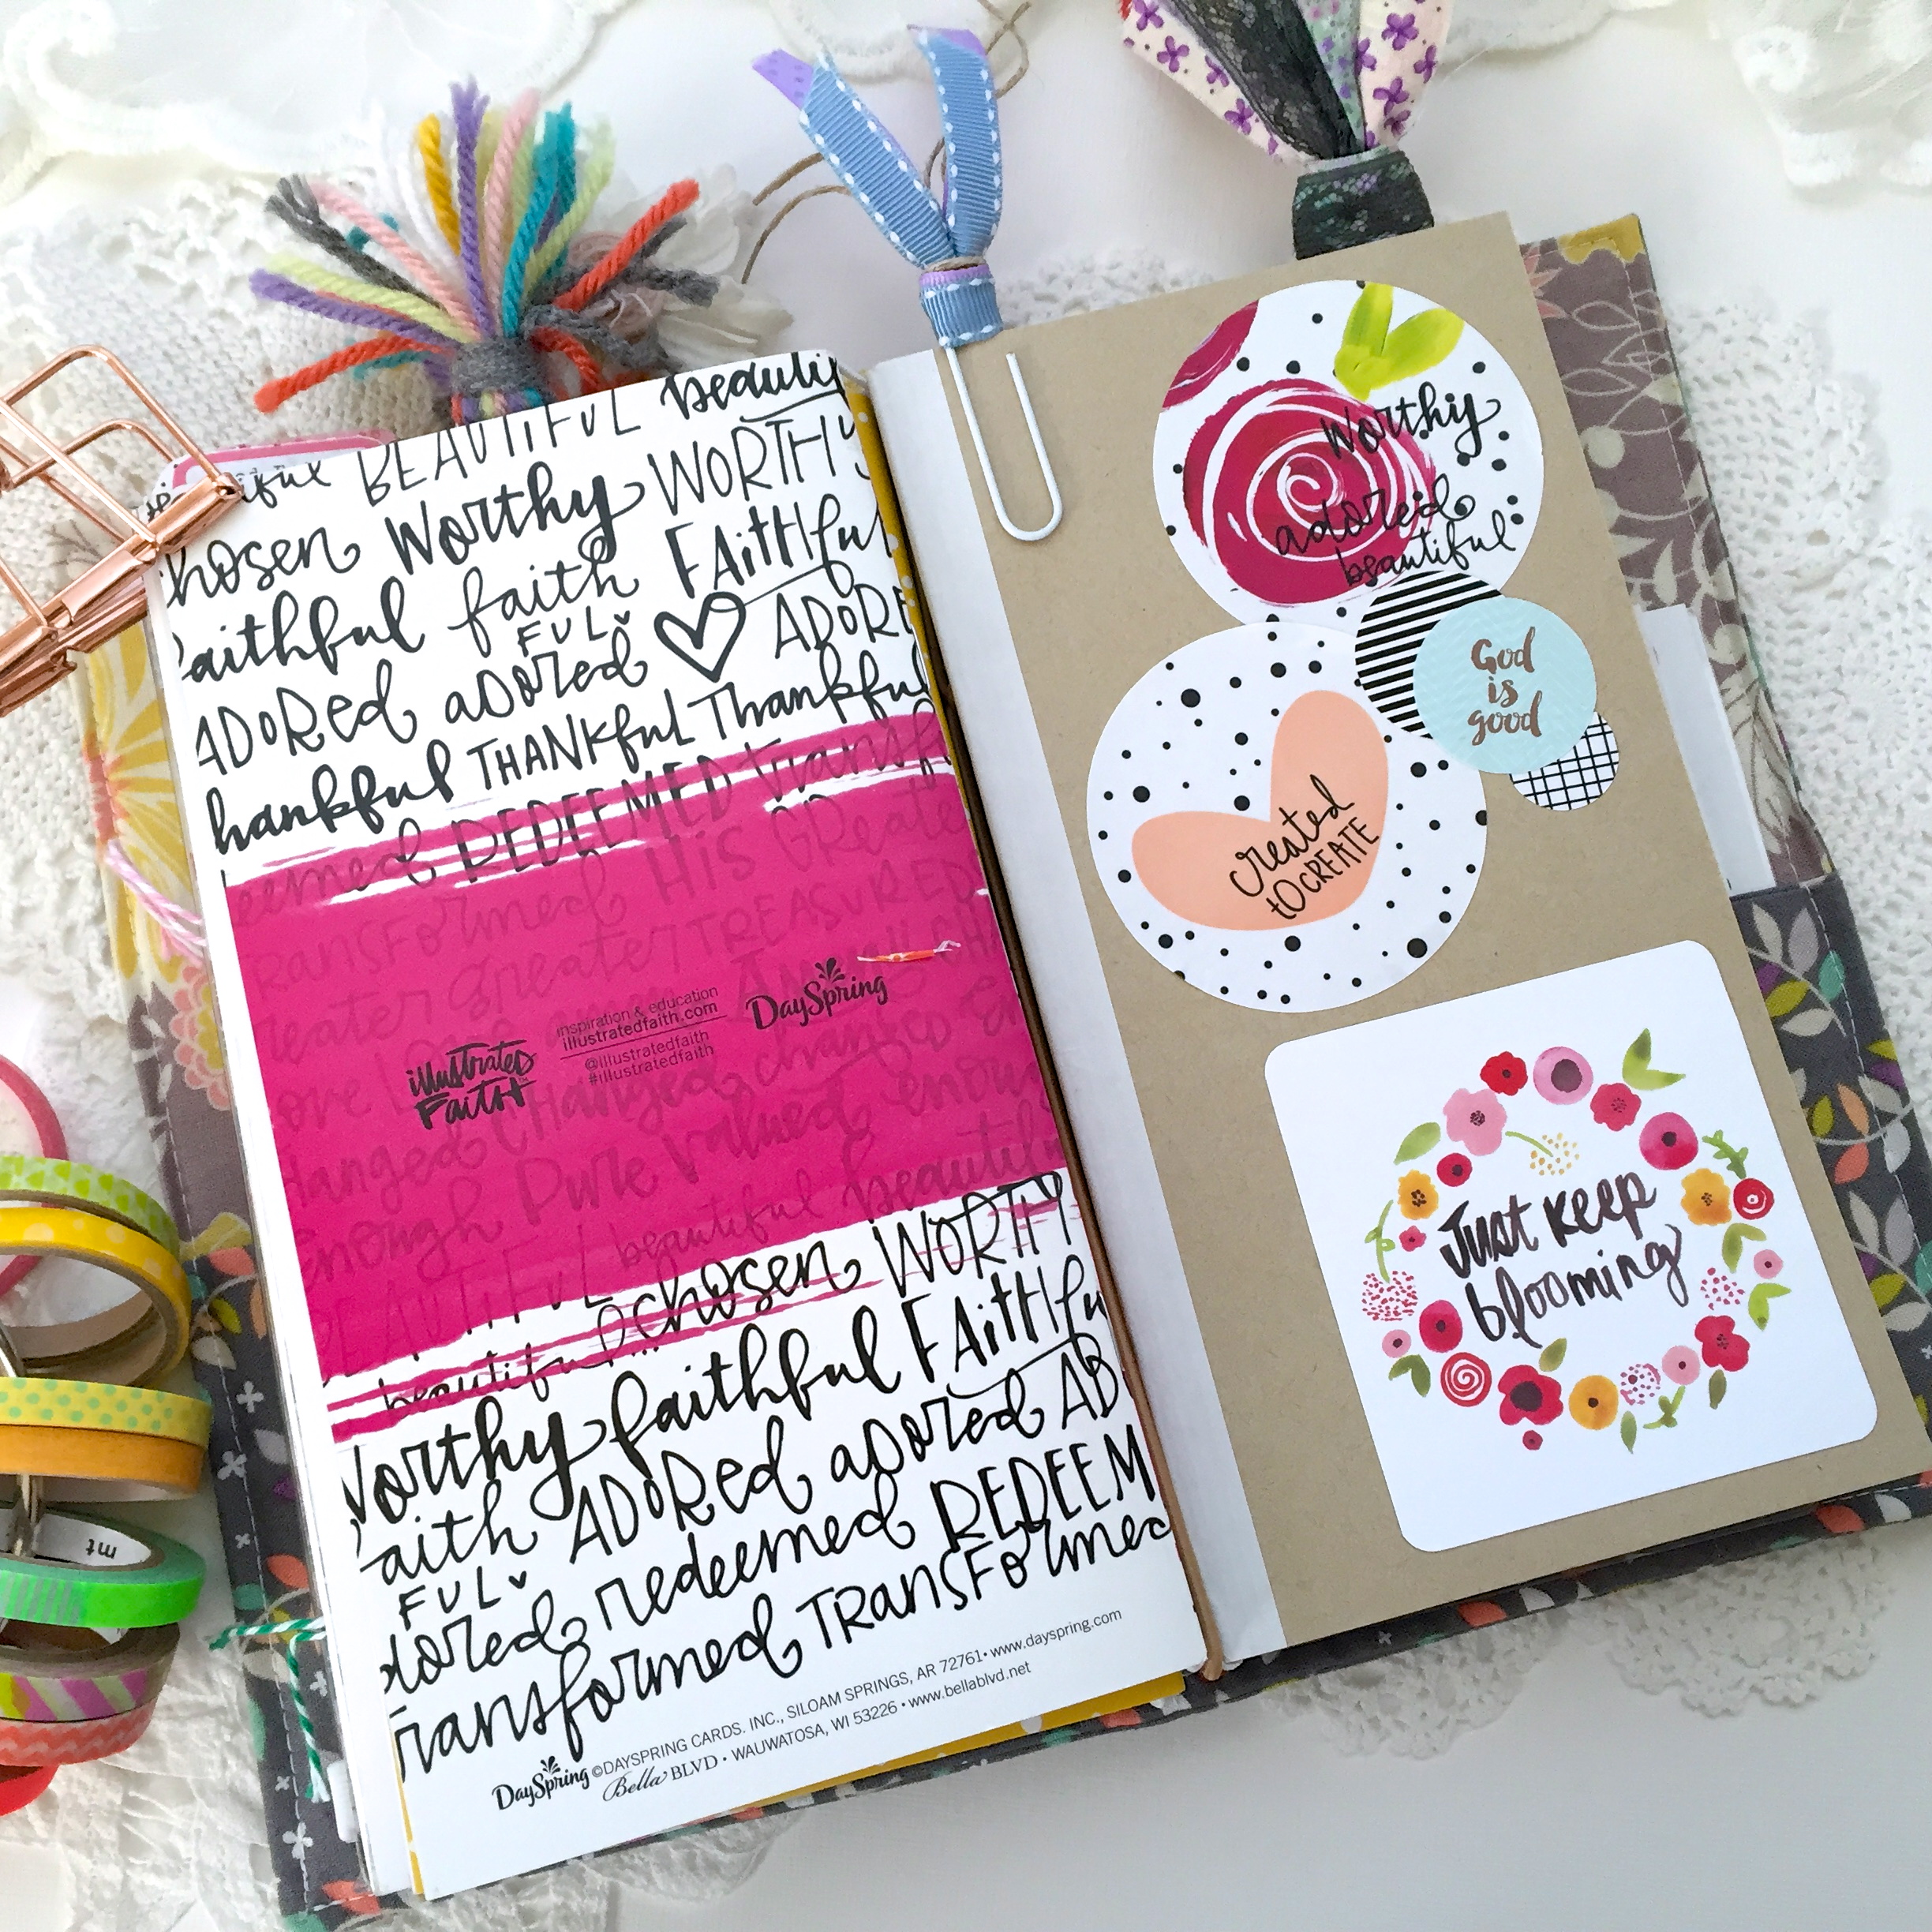 BEAUTIFUL
Worthy WORTHY
faithful faith FUL FAithful
ADORed adored
THANKful Thankful
REDEEMED
TRANSFORmed HIS GReate
Greater TREASURED
illustrated
Faith
inspiration & education
illustratedfaith.com
@illustratedfaith
#illustratedfaith
DaySpring
CHanged changed
enough Pure Valued
beautiful
beautiful chosen WORTHY
Worthy faithful FAithfu
faith FUL ADORed adored AD
redeemed REDEEM
Transformed TRANSFORmed
DaySpring ©DAYSPRING CARDS, INC., SILOAM SPRINGS, AR 72761 • www.dayspring.com
Bella BLVD • WAUWATOSA, WI 53226 • www.bellablvd.net
Worthy
adored
beautiful
God
is
good
created
tO CREATE
Just keep
blooming
mt